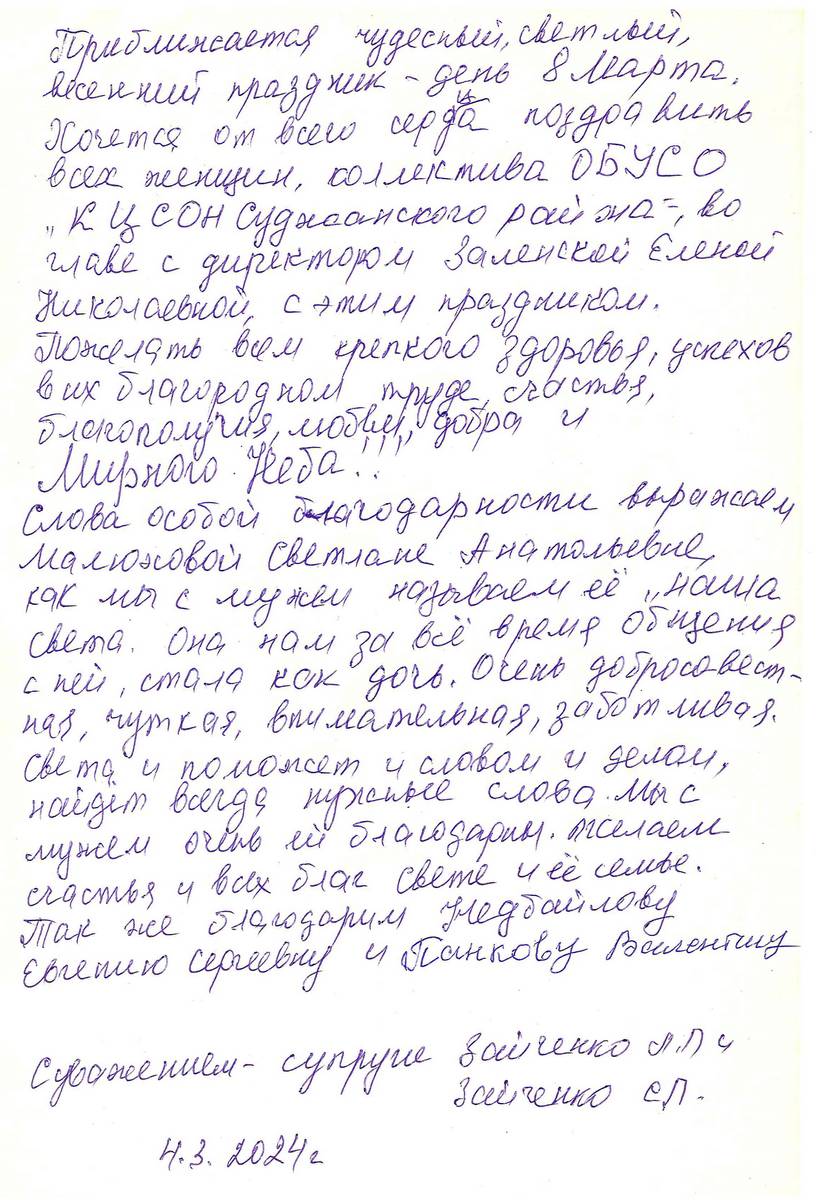 Приближается чудесный, светлый,
весенний праздник - день 8 Марта.
Хочется от всего сердца поздравить
всех женщин, коллектива ОБУСО
„КЦСОН Суджанского района", во
главе с директором Заленской Еленой
Николаевной, с этим праздником.
Пожелать всем крепкого здоровья, успехов
в их благородном труде, счастья,
благополучия, любви, добра и
Мирного Неба!!!
Слова особой благодарности выражаем
Малюховой Светлане Анатольевне,
как мы с мужем называем её „наша
Света. Она нам за всё время общения
с ней, стала как дочь. Очень добросовест-
ная, чуткая, внимательная, заботливая.
Света и поможет и словом и делом,
найдёт всегда нужные слова. Мы с
мужем очень ей благодарны. Желаем
счастья и всех благ Свете и её семье.
Так же благодарим Недбайлову
Евгению Сергеевну и Панкову Валентину
С уважением - супруги Зайченко Л.П и
Зайченко С.П.
4.3.2024г